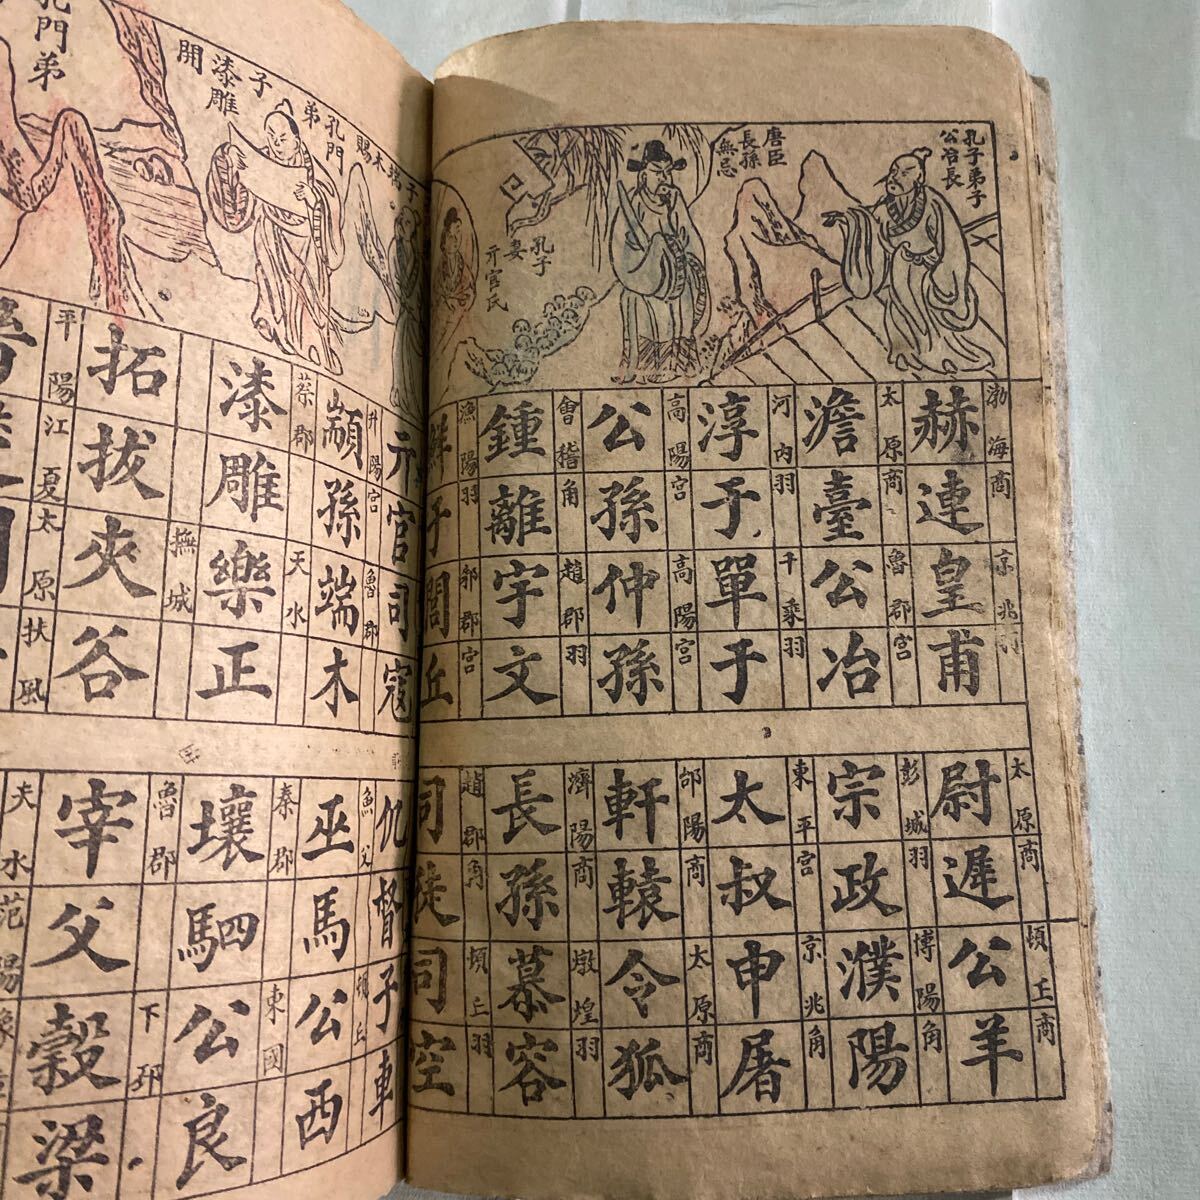 孔子弟子
公冶長
唐臣
長孫
無忌
孔子
妻
亓官氏
渤海商
赫連
京兆羽
皇甫
太原商
澹臺
魯郡宮
公冶
河內羽
淳于
千乘羽
單于
高陽宮
公孫
高陽宮
仲孫
會稽角
鍾離
趙郡羽
宇文
漁陽羽
鮮于
郭郡宮
閭丘
太原商
尉遲
頓丘商
公羊
彭城羽
宗政
博陽角
濮陽
東平宮
太叔
京兆角
申屠
郃陽商
軒轅
太原商
令狐
濟陽商
長孫
燉煌羽
慕容
趙郡角
司徒
頓丘羽
司空
孔門
弟子
漆雕
開
孔門弟
升陽宮
亓官
魯郡
司寇
顓孫
天水
端木
蔡郡
漆雕
樂正
撫城
拓拔
夾谷
平陽
江夏
太原
扶風
仉督
子車
魚父
巫馬
公西
秦郡
壤駟
東國
公良
魯郡
宰父
下邳
穀梁